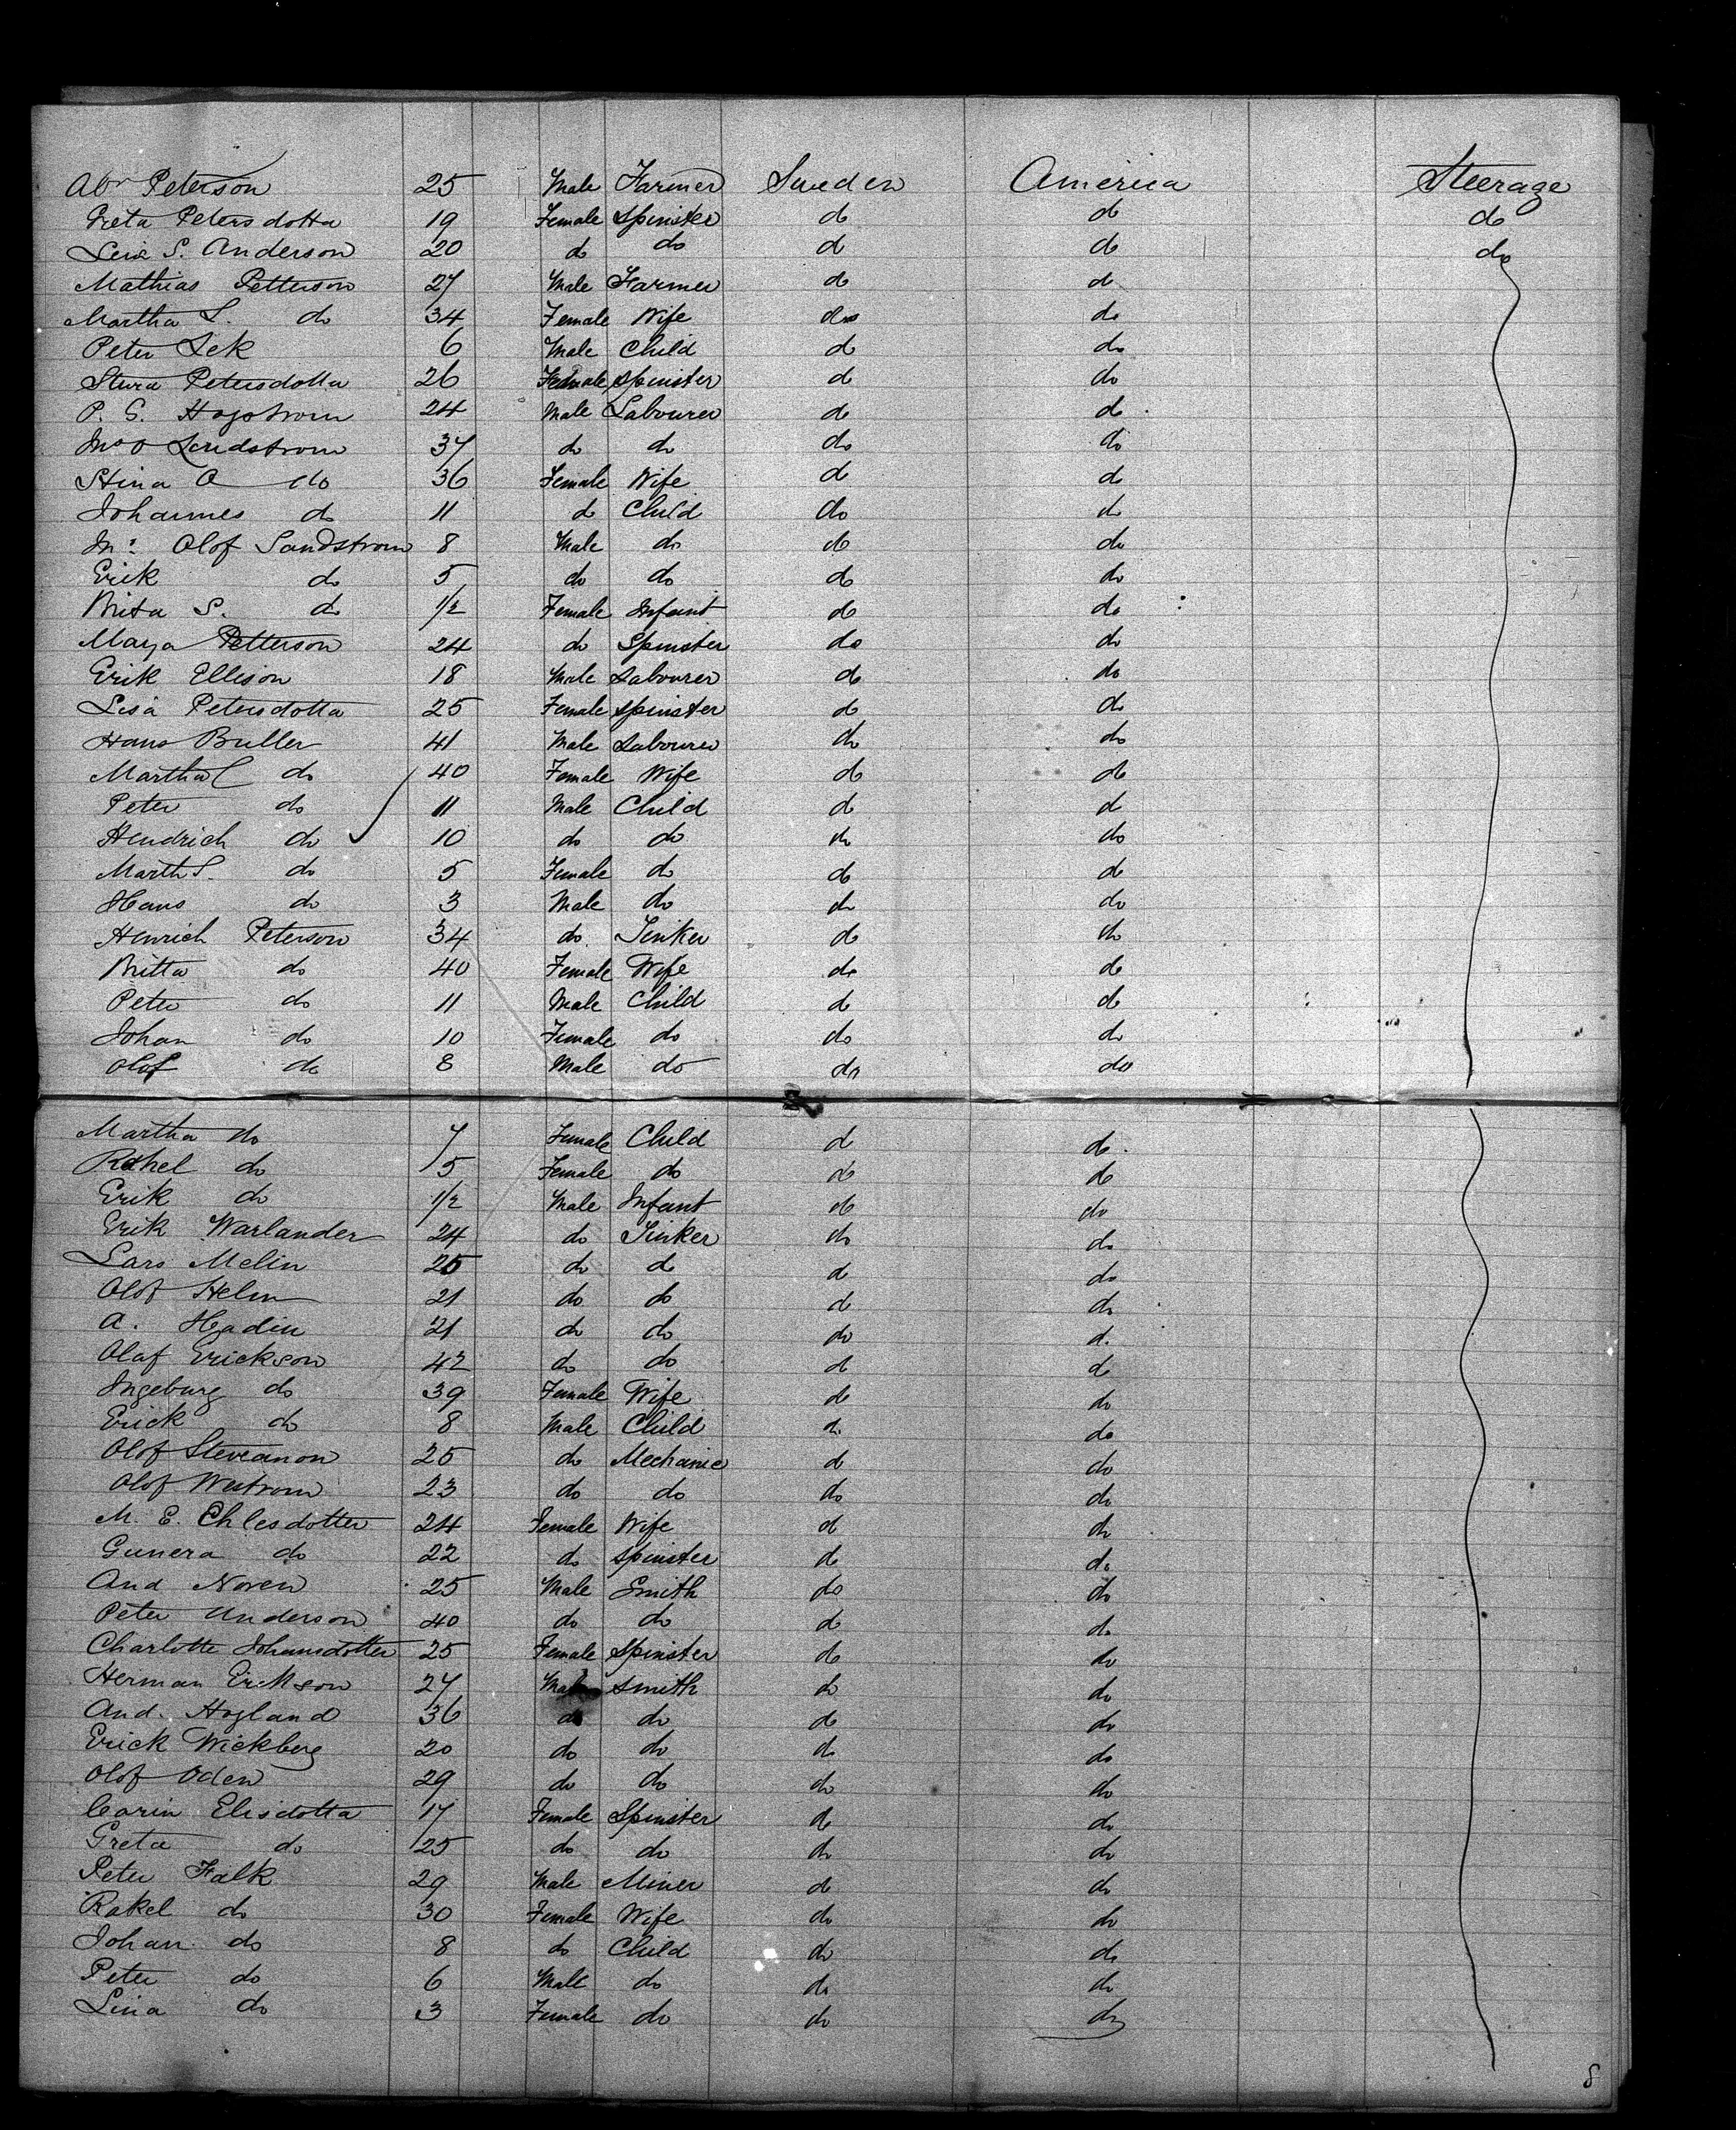 Abr Peterson 25 Male Farmer Sweden America Steerage
Greta Petersdotta 19 Female Spinster do do do
Lena S. Anderson 20 do do do do do
Mathias Petterson 27 Male Farmer do do
Martha L. do 34 Female Wife do do
Peter Lek 6 Male Child do do
Petersdotta 26 Female Spinster do do
P. G. Hogstrom 24 Male Labourer do do
Jno O Lundstrom 37 do do do do
Stina A do 36 Female Wife do do
Johannes do 11 do Child do do
Jn: Olof Sandstrom 8 Male do do do
Erik do 5 do do do do
Brita S. do 1/2 Female Infant do do
Marya Petterson 24 do Spinster do do
Erik Ellison 18 Male Labourer do do
Lisa Petersdotta 25 Female Spinster do do
Hans Buller 41 Male Labourer do do
Martha do 40 Female Wife do do
Peter do 11 Male Child do do
Hendrich do 10 do do do do
Marth S. do 5 Female do do do
Hans do 3 Male do do do
Henrich Peterson 34 do Tinker do do
Britta do 40 Female Wife do do
Peter do 11 Male Child do do
Johan do 10 Female do do do
Olof do 8 Male do do do
Martha do 7 Female Child do do
Rahel do 5 Female do do do
Erik do 1/2 Male Infant do do
Erik Warlander 24 do Tinker do do
Lars Melin 25 do do do do
Olof Helm 21 do do do do
A. Hadin 21 do do do do
Olaf Erickson 42 do do do do
Ingeburg do 39 Female Wife do do
Erick do 8 Male Child do do
Olof Stevanon 25 do Mechanic do do
Olof Westrom 23 do do do do
M. E. Ehlesdotter 24 Female Wife do do
Gunera do 22 do Spinster do do
And Noren 25 Male Smith do do
Peter Anderson 40 do do do do
Charlotte Johansdotter 25 Female Spinster do do
Herman Erikson 27 Male Smith do do
And. Hogland 36 do do do do
Erick Wickberg 20 do do do do
Olof Oden 29 do do do do
Carin Elisdotta 17 Female Spinster do do
Greta do 25 do do do do
Peter Falk 29 Male Miner do do
Rakel do 30 Female Wife do do
Johan do 8 do Child do do
Peter do 6 Male do do do
Lina do 3 Female do do do
8